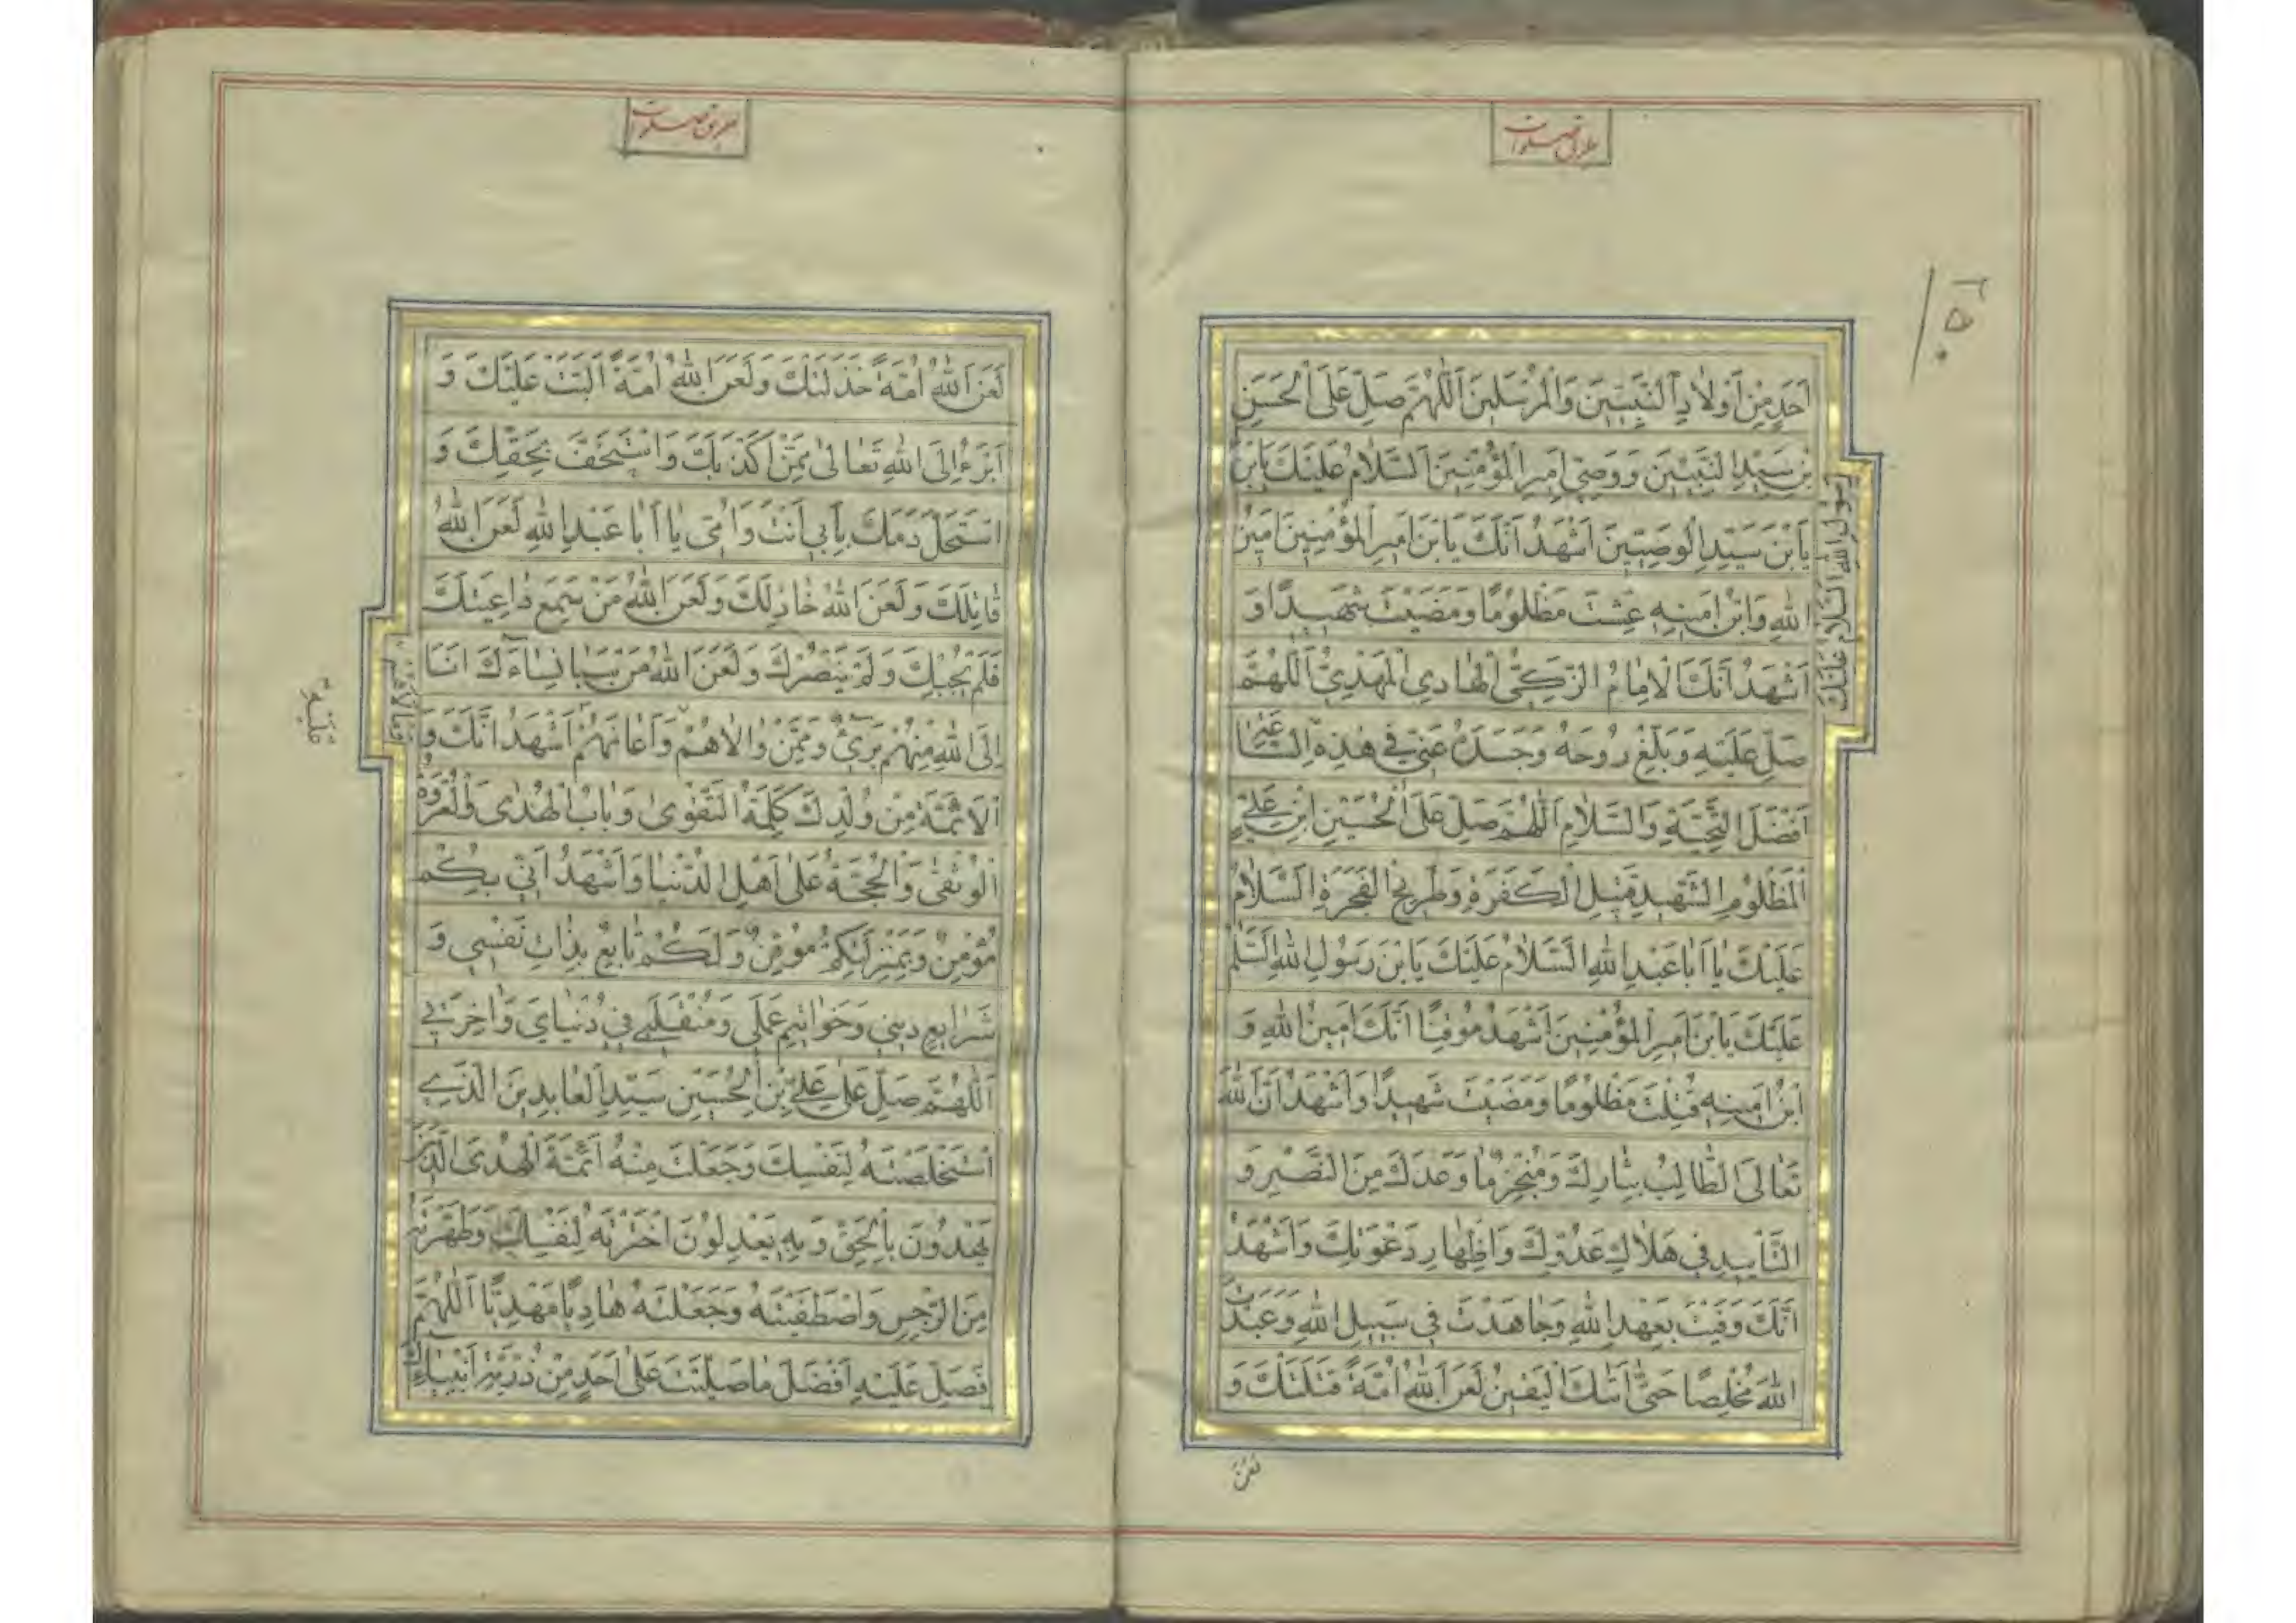 اَحَدٍ مِنْ اَوْلادِ النَّبِيّينَ وَالْمُرْسَلينَ اَللّهُمَّ صَلِّ عَلَى الْحَسَنِ
بْنِ سَيِّدِ النَّبِيّينَ وَوَصِيِّ اَميرِ الْمُؤْمِنينَ اَلسَّلامُ عَلَيْكَ يَابْنَ
رَسُولِ اللهِ اَلسَّلامُ عَلَيْكَ
يَا بْنَ سَيِّدِ الْوَصِيّينَ اَشْهَدُ اَنَّكَ يَا بْنَ اَميرِ الْمُؤْمِنينَ اَمينُ
اللهِ وَابْنُ اَمينِهِ عِشْتَ مَظْلُومًا وَمَضَيْتَ شَهيدًا وَ
اَشْهَدُ اَنَّكَ الْاِمامُ الزَّكِيُّ الْهادِي الْمَهْدِيُّ اَللّهُمَّ
صَلِّ عَلَيْهِ وَبَلِّغْ رُوحَهُ وَجَسَدَهُ عَنّي في هٰذِهِ السّاعَةِ
اَفْضَلَ التَّحِيَّةِ وَالسَّلامِ اَللّهُمَّ صَلِّ عَلَى الْحُسَيْنِ ابْنِ عَلِيٍّ
الْمَظْلُومِ الشَّهيدِ قَتيلِ الْكَفَرَةِ وَطَريحِ الْفَجَرَةِ اَلسَّلامُ
عَلَيْكَ يا اَبا عَبْدِ اللهِ اَلسَّلامُ عَلَيْكَ يَابْنَ رَسُولِ اللهِ اَلسَّلامُ
عَلَيْكَ يَابْنَ اَميرِ الْمُؤْمِنينَ اَشْهَدُ مُوقِنًا اَنَّكَ اَمينُ اللهِ وَ
ابْنُ اَمينِهِ قُتِلْتَ مَظْلُومًا وَمَضَيْتَ شَهيدًا وَاَشْهَدُ اَنَّ اللهَ
تَعالَى الطّالِبُ بِثارِكَ وَمُنْجِزٌ ما وَعَدَكَ مِنَ النَّصْرِ وَ
التَّاْييدِ في هَلاكِ عَدُوِّكَ وَاِظْهارِ دَعْوَتِكَ وَاَشْهَدُ
اَنَّكَ وَفَيْتَ بِعَهْدِ اللهِ وَجاهَدْتَ في سَبيلِ اللهِ وَعَبَدْتَ
اللهَ مُخْلِصًا حَتّى اَتيكَ الْيَقينُ لَعَنَ اللهُ اُمَّةً قَتَلَتْكَ وَ
لَعَنَ
لَعَنَ اللهُ اُمَّةً خَذَلَتْكَ وَلَعَنَ اللهُ اُمَّةً اَلَّبَتْ عَلَيْكَ وَ
اَبْرَءُ اِلَى اللهِ تَعالى مِمَّنْ اَكْذَبَكَ وَاسْتَخَفَّ بِحَقِّكَ وَ
اسْتَحَلَّ دَمَكَ بِاَبي اَنْتَ وَاُمّي يا اَبا عَبْدِ اللهِ لَعَنَ اللهُ
قاتِلَكَ وَلَعَنَ اللهُ خاذِلَكَ وَلَعَنَ اللهُ مَنْ سَمِعَ داعِيَتَكَ
فَلَمْ يُجِبْكَ وَلَمْ يَنْصُرْكَ وَلَعَنَ اللهُ مَنْ سَبا نِساءَكَ اَنَا
اِلَى اللهِ مِنْهُمْ بَريءٌ وَمِمَّنْ والاهُمْ وَاَعانَهُمْ اَشْهَدُ اَنَّكَ وَ
الْاَئِمَّةَ مِنْ وُلْدِكَ كَلِمَةُ التَّقْوى وَبابُ الْهُدى وَالْعُرْوَةُ
الْوُثْقى وَالْحُجَّةُ عَلى اَهْلِ الدُّنْيا وَاَشْهَدُ اَنّي بِكُمْ
مُؤْمِنٌ وَبِمَنْزِلَتِكُمْ مُوقِنٌ وَلَكُمْ تابِعٌ بِذاتِ نَفْسي وَ
شَرايِعِ ديني وَخَواتيمِ عَمَلي وَمُنْقَلَبي في دُنْيايَ وَاخِرَتي
اَللّهُمَّ صَلِّ عَلى عَلِيِّ بْنِ الْحُسَيْنِ سَيِّدِ الْعابِدينَ الَّذي
اسْتَخْلَصْتَهُ لِنَفْسِكَ وَجَعَلْتَ مِنْهُ اَئِمَّةَ الْهُدَى الَّذينَ
يَهْدُونَ بِالْحَقِّ وَبِهِ يَعْدِلُونَ اخْتَرْتَهُ لِنَفْسِكَ وَطَهَّرْتَهُ
مِنَ الرِّجْسِ وَاصْطَفَيْتَهُ وَجَعَلْتَهُ هادِيًا مَهْدِيًّا اَللّهُمَّ
فَصَلِّ عَلَيْهِ اَفْضَلَ ما صَلَّيْتَ عَلى اَحَدٍ مِنْ ذُرِّيَّةِ اَنْبِيائِكَ